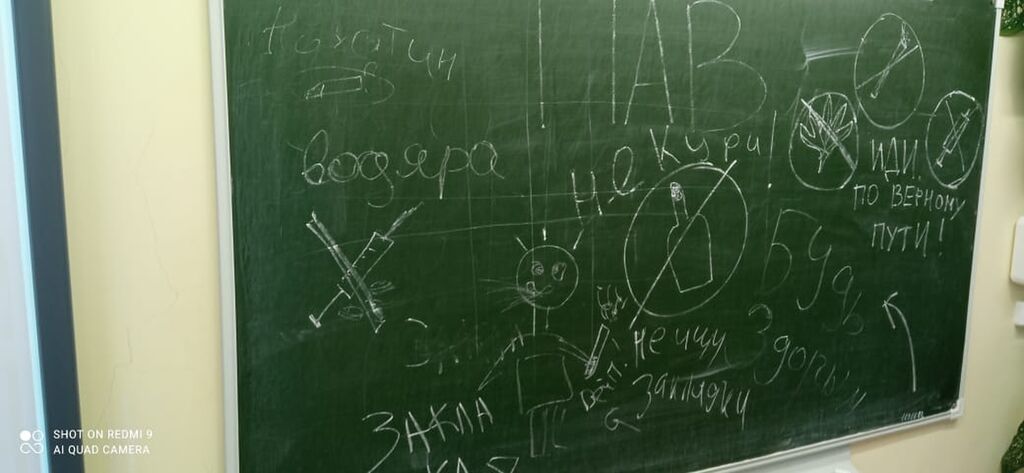 Никотин
ПАВ
водяра
Не кури!
ИДИ
ПО ВЕРНОМУ
ПУТИ!
Будь
Здоровым
вейп
не ищу
закладку
ЗАКЛА
SHOT ON REDMI 9
AI QUAD CAMERA